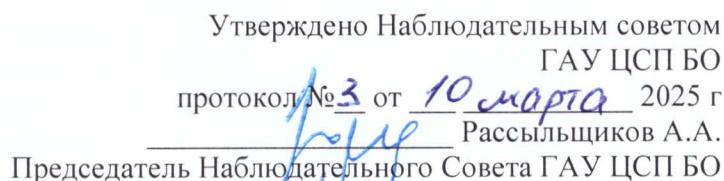 Утверждено Наблюдательным советом
ГАУ ЦСП БО
протокол №3 от 10 марта 2025 г
Рассыльщиков А.А.
Председатель Наблюдательного Совета ГАУ ЦСП БО